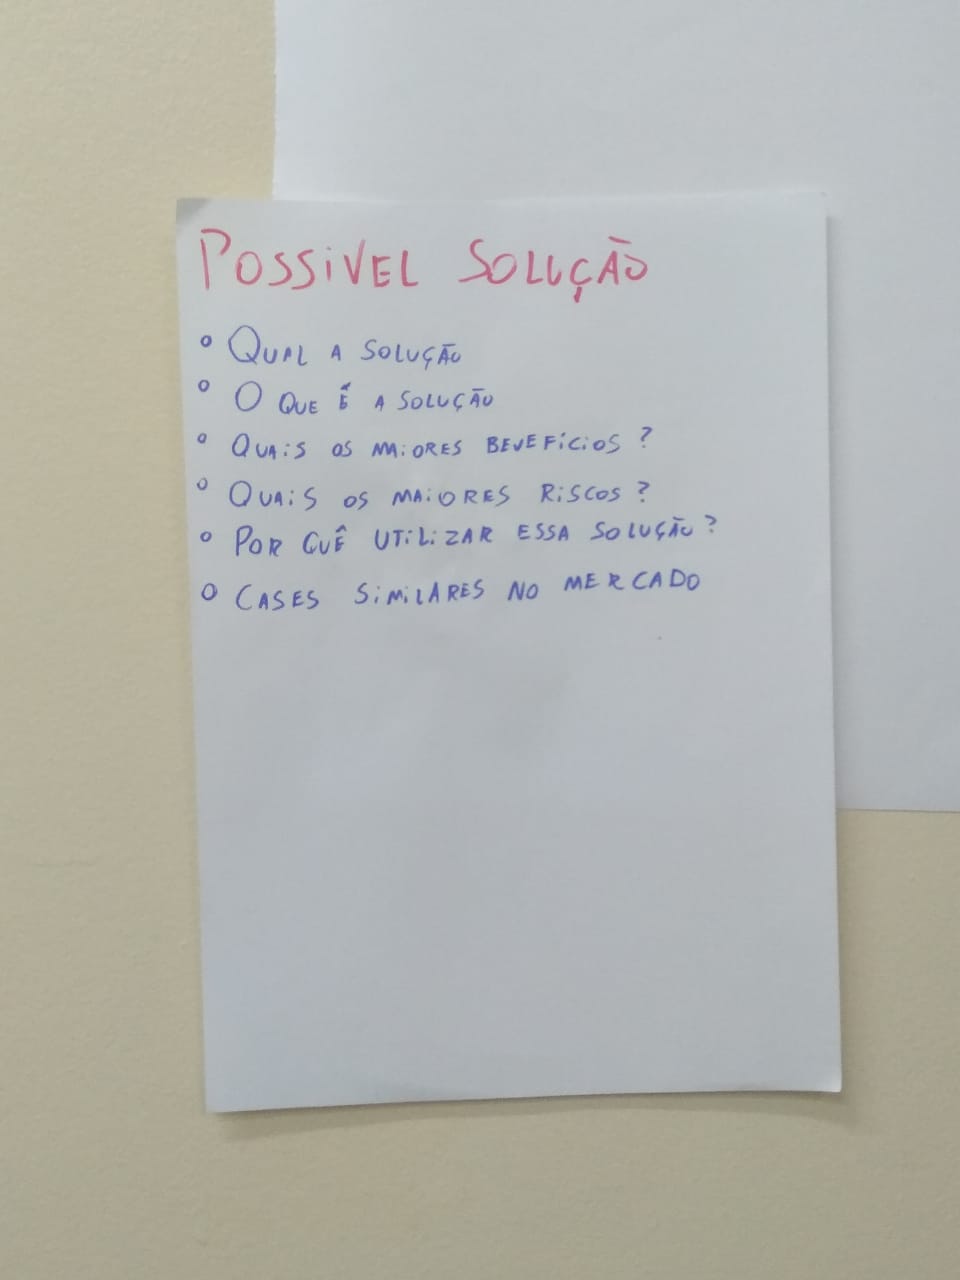 POSSIVEL SOLUÇÃO
° QUAL A SOLUÇÃO
° O QUE É A SOLUÇÃO
° QUAIS OS MAIORES BENEFÍCIOS ?
° QUAIS OS MAIORES RISCOS ?
° POR QUÊ UTILIZAR ESSA SOLUÇÃO ?
° CASES SIMILARES NO MERCADO